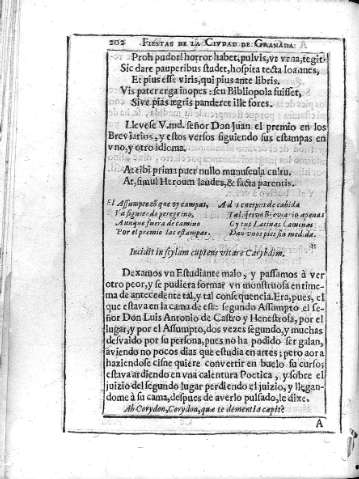 202 FIESTAS DE LA CIVDAD DE GRANADA.
Proh pudor! horror habet, pulvis, vt vrna, tegit.
Sic dare pauperibus studet, hospita tecta Ioannes,
Et pius esse viris, qui pius ante libris.
Vis pater erga inopes: seu Bibliopola fuisset,
Sive pias ægris panderet ille fores.
Llevese V.md. señor Don Juan el premio en los
Breviarios, y estos versos siguiendo sus estampas en
vno, y otro idioma.
At tibi prima puer nullo munuscula cultu.
At, simul Heroum laudes, & facta parentis.
El Assumpto en que oy campas,
Va siguiendo peregrino,
Aunque fuera de camino
Por el premio las estampas.
Ad vn cuerpo de cabida
Tal dieron Breviario apenas
Cytus Latinas Camenas
Dav voos pies sin medida.
Incidit in scylam cupiens vitare Carybdim.
Dexamos vn Estudiante malo, y passamos à vèr
otro peor, y se pudiera formar vn monstruosa entime-
ma de antecedente tal, y tal consequencia. Era, pues, el
que estava en la cama de este segundo Assumpto el se-
ñor Don Luis Antonio de Castro y Henestrosa, por el
lugar, y por el Assumpto, dos vezes segundo, y muchas
desvaido por su persona, pues no ha podido ser galan,
aviendo no pocos dias que estudia en artes; pero aora
haziendose cisne quiere convertir en buelo su curso;
estava ardiendo en vna calentura Poetica, y sobre el
juizio del segundo lugar perdiendo el juizio, y llegan-
dome à su cama, despues de averlo pulsado, le dixe.
Ah Corydon, Corydon, quæ te dementia cæpit?
A